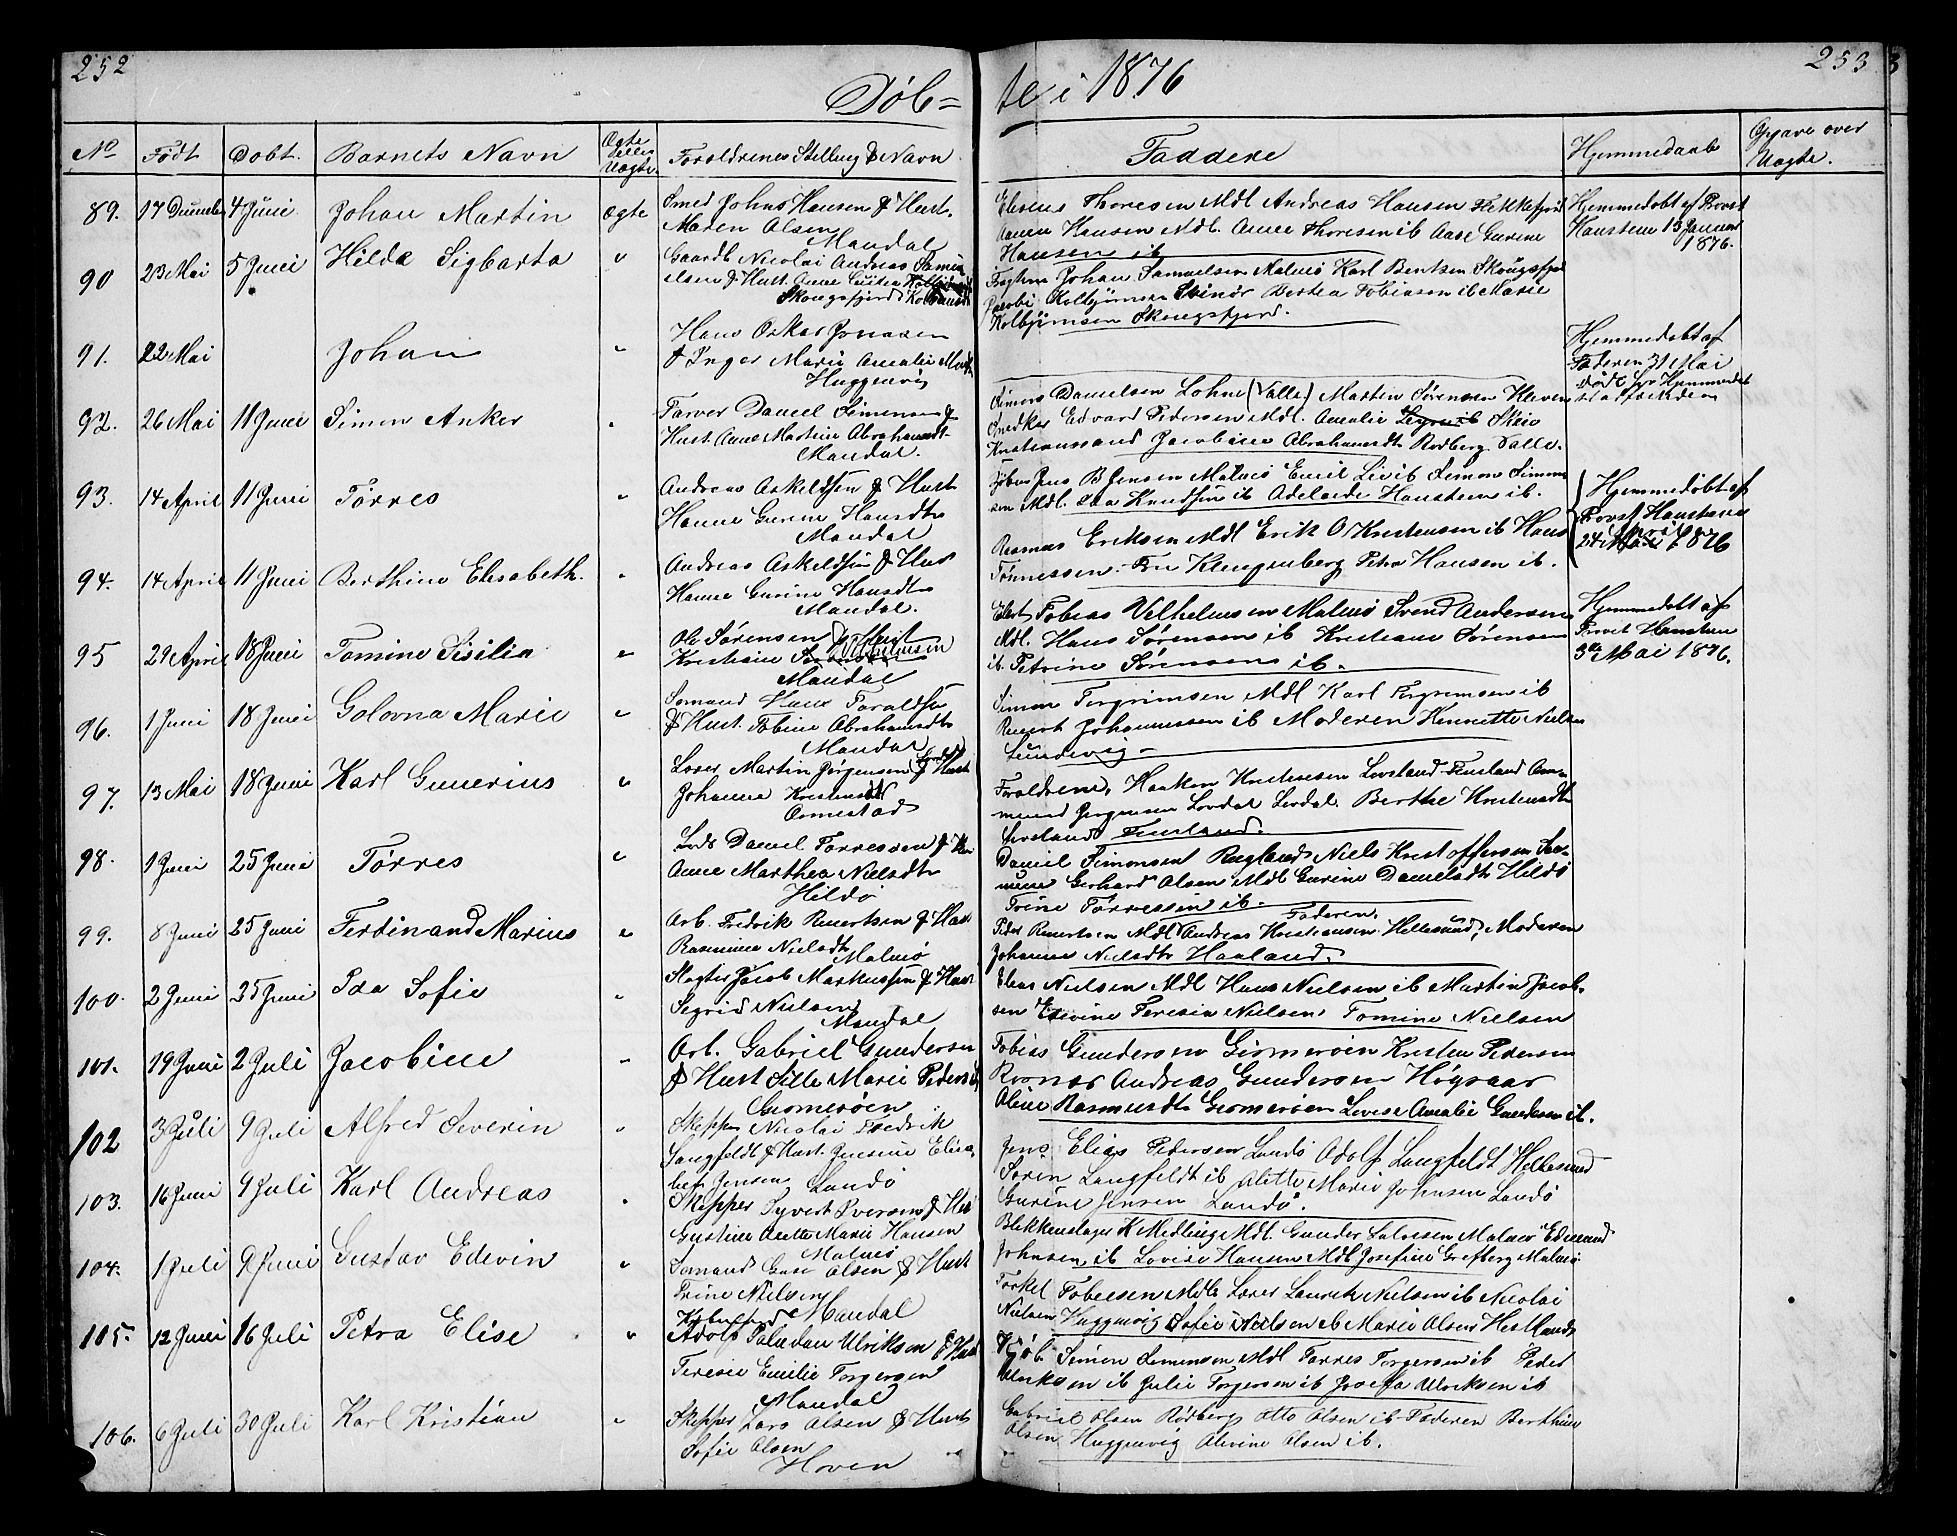 252
253
Døb=
te i 1876
No Født Døbt. Barnets Navn Ægte eller Uægte. Forældrenes Stilling & Navn Faddere Hjemmedaab Opgave over Uægte.
89. 17 Decemb 4 Juni Johan Martin ægte Smed Johns Hansen & Hust.
Maren Olsen
Mandal
Thoresen Mdl Andreas Hansen Flekkefjord
Hansen Mdl. Anne Thoresen ib Aase Gurine
Hansen ib
Hjemmedøbt af Provst
Hansteen 13 Januar
1876.
90 23 Mai 5 Juni Hilda Sigbarta " Gaardb Nicolai Andreas Samu
elsen & Hust. Anne
Skougsfjord
Johan Samuelsen Malmø Karl Bentsen Skougsfjor
Jacobi Kolbjørnsen Bertea Tobiasen ib Marie
Kolbjørnsen Skougsfjord.
91. 22 Mai Johan " Hans Oskar Jonasen
& Inger Marie Amalie
Huggenvig
Hjemmedøbt af
Faderen 31 Mai
92. 26 Mai 11 Juni Simon Anker " Farver Daniel Simonsen &
Hust. Anne Martine Abrahamsdt
Mandal.
Simon Danielsen Lohne (Valle) Martin Sørensen Kleven
Snedker Edvard Pedersen Mdl. Amalie
Kristianssand Jacobine Abrahamsdt Rødberg Valle.
93. 14 April 11 Juni Tørres " Andreas Askeldsen & Hust
Hanne Gurine Hansdtr
Mandal
Jens B Jensen Malmø Emil Liv ib Simon Simon
sen Mdl. Knudsen ib Adelaide Hansteen ib.
Hjemmedøbt af
Provst Hansteen
24 1876
94. 14 April 11 Juni Berthine Elisabeth. " Andreas Askeldsen & Hus
Hanne Gurine Hansdtr
Mandal.
Rasmus Eriksen Mdl Erik O Kristensen ib Hans
Tønnessen. Klungenberg Petra Hansen ib.
95 29 April 18 Juni Tomine Sisilia " Ole Sørensen & Hust
Kristiane Vilhelmsen
Mandal
Tobias Vilhelmsen Malmø Svend Andersen
Mdl. Hans Sørensen ib Kristiane Sørensen
ib. Petrine Sørensen ib.
Hjemmedøbt af
Provst Hansteen
3die Mai 1876.
96. 1 Juni 18 Juni Golovna Marie " Sømand Hans Faraldsen
& Hust. Tobine Abrahamsdtr
Mandal
Simon Torgrimsen Mdl Karl Torgrimsen ib
Reinert Johannessen ib Moderen Henriette Nielsen
Lundevig
97. 13 Mai 18 Juni Karl Gunerius " Loser Martin Jørgensen & Hust
Johanne Kristensdt
Ormestad
Forældrene, Haakon Kristensen Lovsland Finsland
mund Jørgensen Lovdal Berthe Kristensdtr
Lovsland Finsland.
98. 1 Juni 25 Juni Tørres " Lods Daniel Tørresen &
Anne Marthea Nielsdtr
Hildø
Daniel Simonsen Niels Kristoffersen
Gerhard Olsen Mdl Gurine Danielsdtr Hildø
Trine Tørresen ib.
99. 8 Juni 25 Juni Ferdinand Marius " Arb. Fredrik Reiertsen & Hust
Rasmine Nielsdtr
Malmø
Peder Reiertsen Mdl Faderen, Andreas Kristiansen Hellesund, Moderen
Johanne Nielsdtr Haaland.
100. 2 Juni 25 Juni Ida Sofie " Slagter Jacob Markussen & Hust
Segrid Nielsen
Mandal
Elias Nielsen Mdl Hans Nielsen ib Martin Jacob-
sen Teresia Nielsen, Tomine Nielsen
101. 19 Juni 2 Juli Jacobine " Arb. Gabriel Gundersen
& Hust Sille Marie Peders
Gismerøen
Tobias Gundersen Gismerøen Kristen Pedersen
Andreas Gundersen Høgsaar
Oline Rasmusdtr Gismerøen Lovise Amalie Gundersen ib.
102 3 Juli 9 Juli Alfred Severin " Skepper Nicolai Fredrik
Langfeldt & Hust. Jensine Elisa-
bet Jensen Landø
Jens Elias Pedersen Landø Adolf Langfeldt Hellesund
Søren Langfeldt ib Alette Marie Johnsen Landø
Gurine Jensen Landø.
103. 16 Juni 9 Juli Karl Andreas " Skepper Syvert Iversen &
Gustine Anette Marie Hansen
Malmø
Blikkenslager K Medling Mdl. Gunder Salvesen Malmø Edmund
Johnsen ib Lovise Hansen Mdl Josefine Grefberg Malmø
104. 1 Juli 9 Juni Gustav Edevin " Sømand Olsen & Hust
Trine Nielsen
Mandal
Torkel Tobiesen Mdl Loser Laurits Nielsen ib Nicolai
Nielsen Huggenvig Sofie Nielsen ib Marie Olsen
105. 12 Juni 16 Juli Petra Elise " Adolf Paladan Ulriksen & Hust
Teresie Emilie Torgersen
Mandal
Kjøb. Simon Simonsen Mdl Tørres Torgersen ib Peder
Ulriksen ib Julie Torgersen ib Josefa Ulriksen ib
106. 6 Juli 30 Juli Karl Kristian " Skepper Lars Olsen & Hust
Sofie Olsen
Hoven
Gabriel Olsen Rødberg Otto Olsen ib Faderen Berthine
Olsen Huggenvig Olevine Olsen ib.